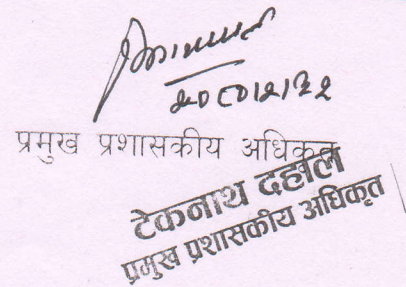 प्रमुख प्रशासकीय अधिकृत
टेकनाथ दहाल
प्रमुख प्रशासकीय अधिकृत